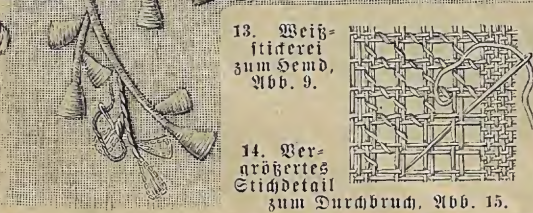 13. Weiß=
stickerei
zum Hemd,
Abb. 9.
14. Ver=
größertes
Stichdetail
zum Durchbruch, Abb. 15.